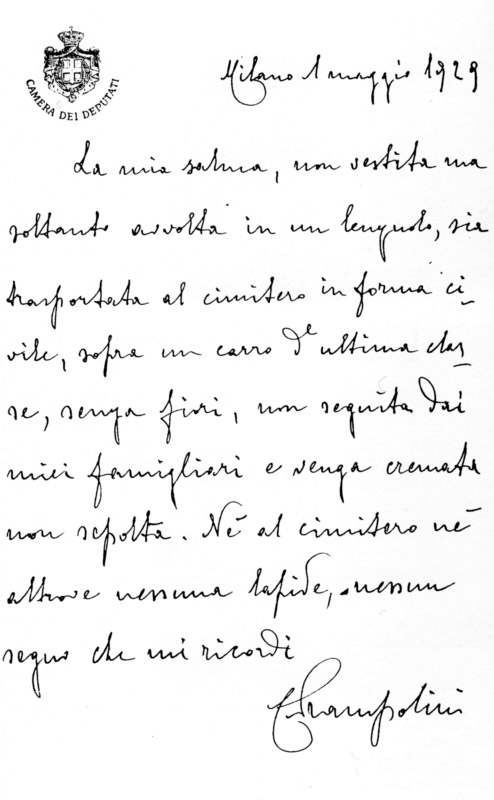 CAMERA DEI DEPUTATI
Milano 1 maggio 1929
La mia salma, non vestita ma
soltanto avvolta in un lenzuolo, sia
trasportata al cimitero in forma ci-
vile, sopra un carro d'ultima clas-
se, senza fiori, non seguita dai
miei famigliari e venga cremata
non sepolta. Né al cimitero né
altrove nessuna lapide, nessun
segno che mi ricordi
CPrampolini